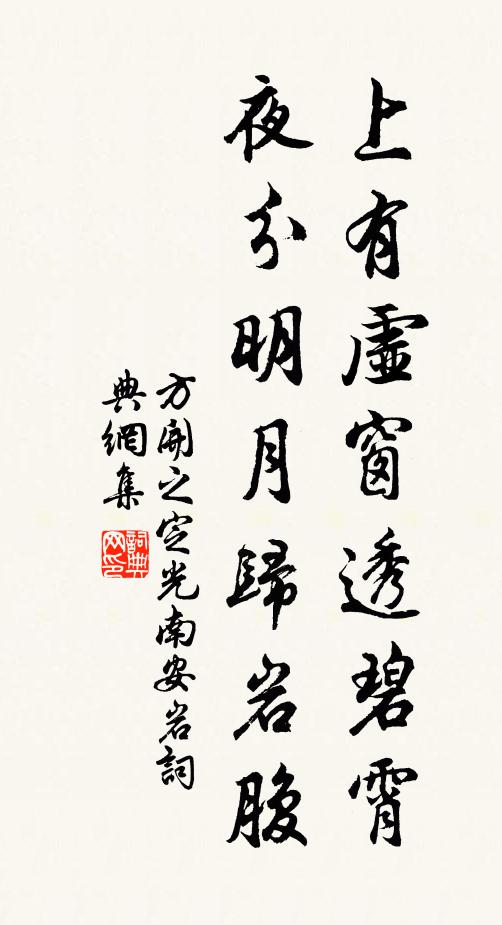 上有虛窗透碧霄
夜分明月歸岩腹
方開之定光南安岩詞
典網集
詞典网印